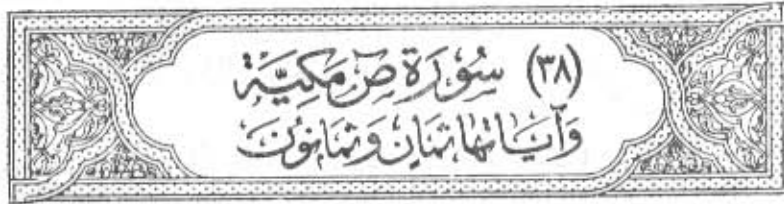 (٣٨) سُوْرَة صۤ مَكِيَّة
وَآيَاتُهَا ثَمَانٍ وَثَمَانُونَ